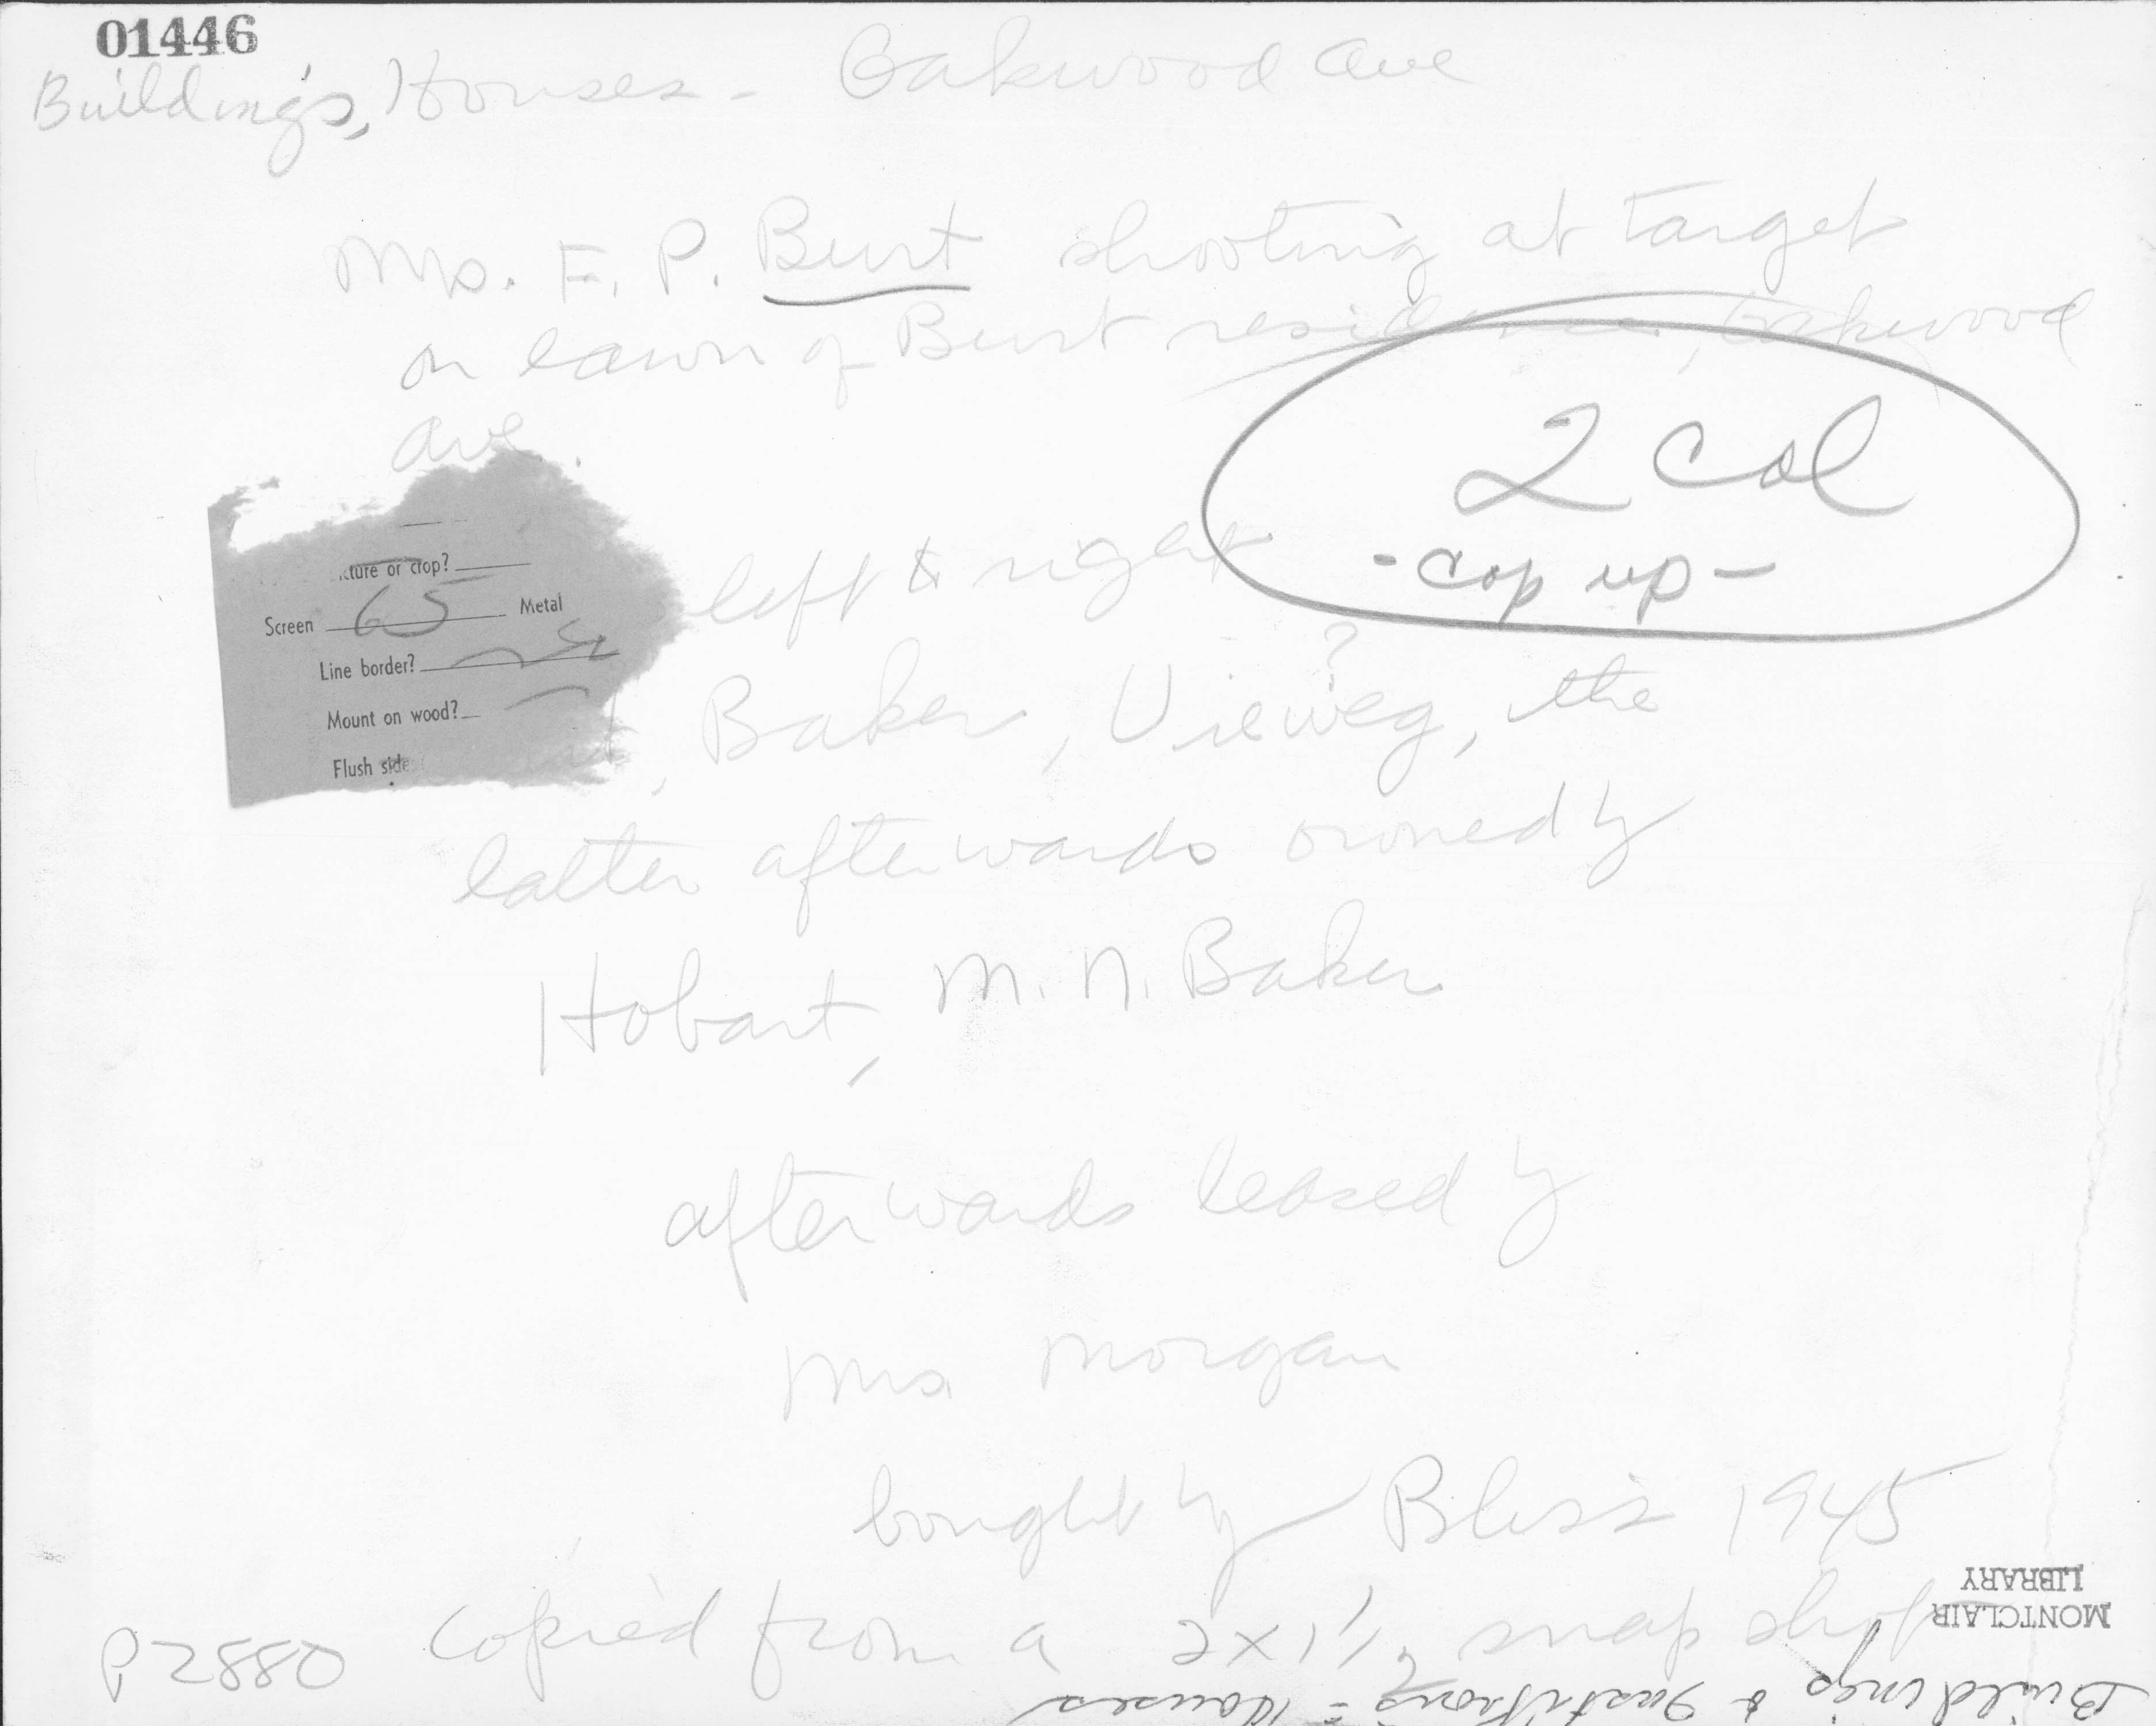 01446
Buildings, Houses - Oakwood Ave
Mrs. F. P. Burt shooting at target
on lawn of Burt residence, Oakwood
Ave.
2 Col
- cop up -
cture or crop?
Screen 65 Metal
Line border?
Mount on wood?
Flush side
left to right
, Baker, Vieweg, ? the
latter afterwards owned by
Hobart, M. N. Baker
afterwards leased by
Mrs Morgan
bought by Bliss 1945
MONTCLAIR
LIBRARY
P2880 copied from a 2x1 1/2 snap shot
Buildings & Institutions - Houses